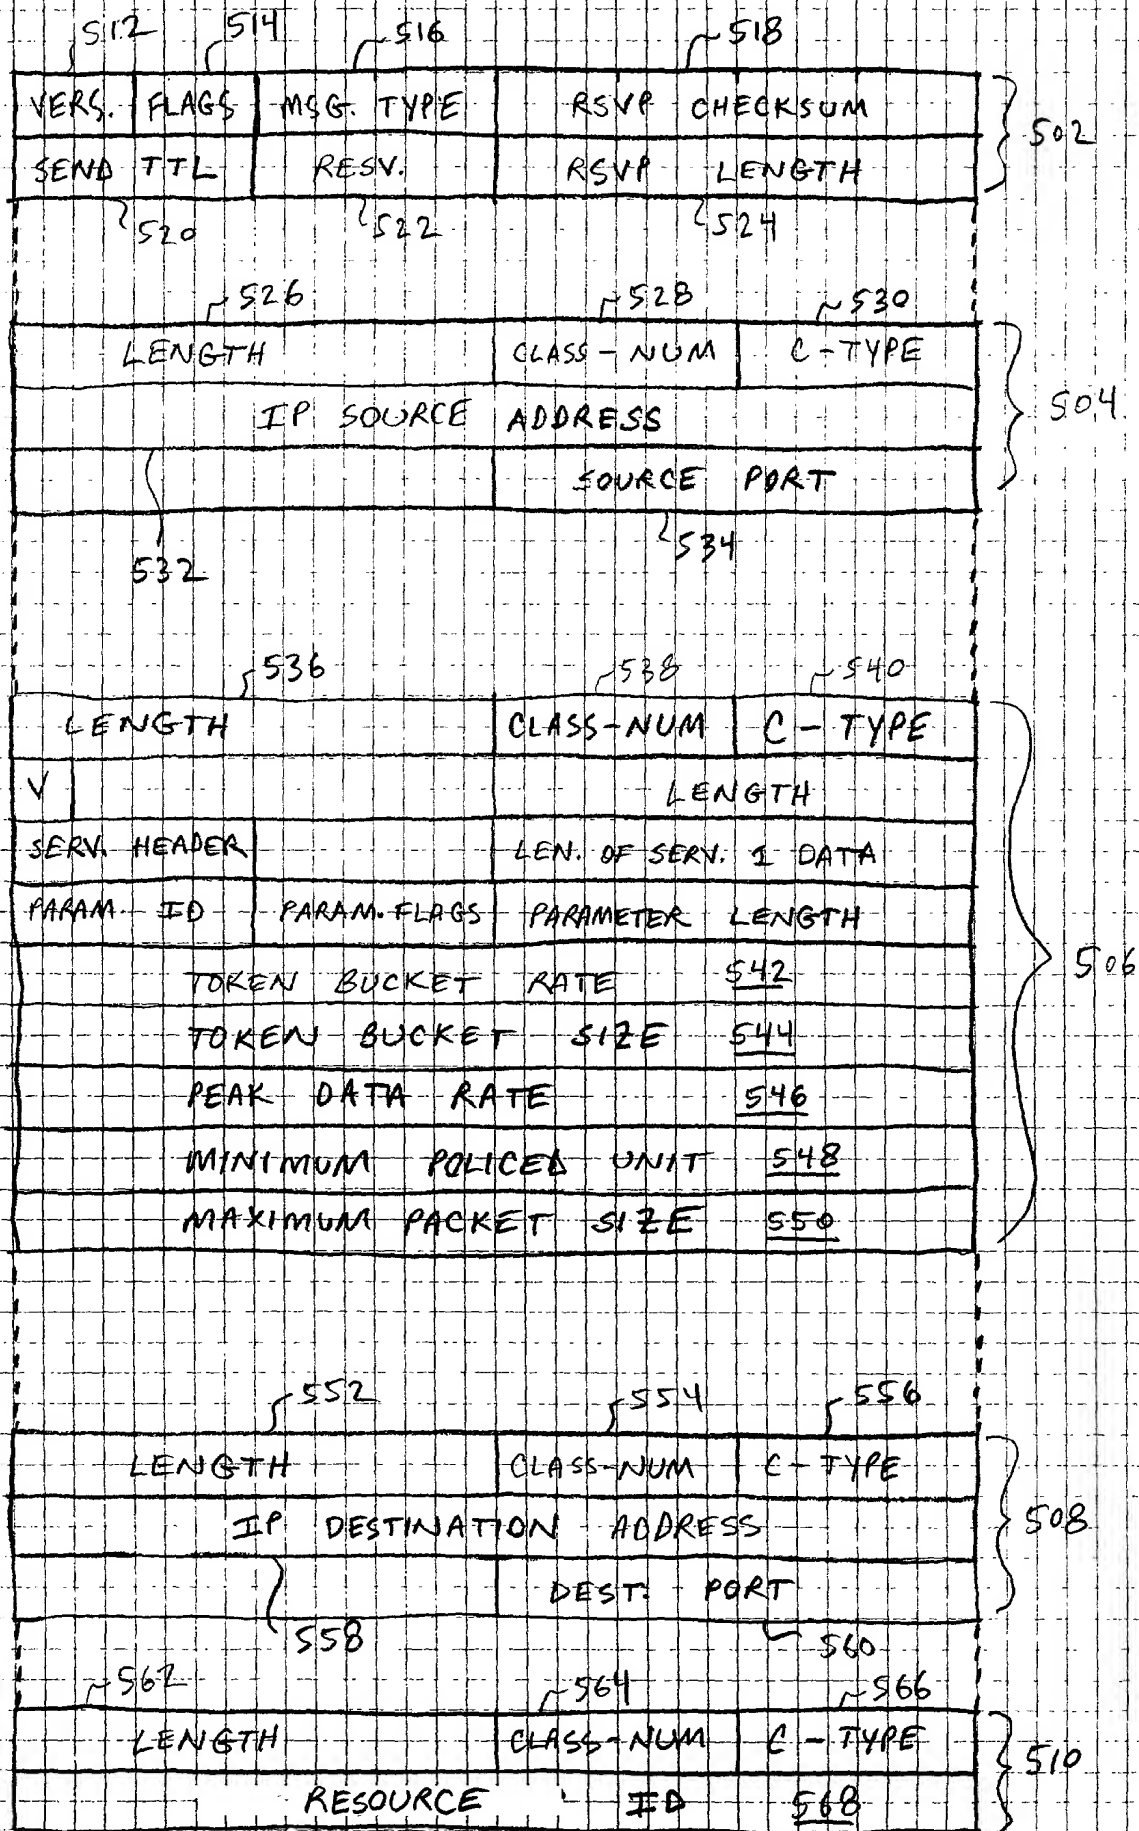 512 514 516 518
VERS. FLAGS MSG. TYPE RSVP CHECKSUM
502
SEND TTL RESV. RSVP LENGTH
520 522 524
526 528 530
LENGTH CLASS-NUM C-TYPE
IP SOURCE ADDRESS
504
SOURCE PORT
532 534
536 538 540
LENGTH CLASS-NUM C-TYPE
V LENGTH
SERV. HEADER LEN. OF SERV. 1 DATA
PARAM. ID PARAM. FLAGS PARAMETER LENGTH
TOKEN BUCKET RATE 542
506
TOKEN BUCKET SIZE 544
PEAK DATA RATE 546
MINIMUM POLICED UNIT 548
MAXIMUM PACKET SIZE 550
552 554 556
LENGTH CLASS-NUM C-TYPE
IP DESTINATION ADDRESS
508
DEST. PORT
558 560
562 564 566
LENGTH CLASS-NUM C-TYPE
510
RESOURCE ID 568